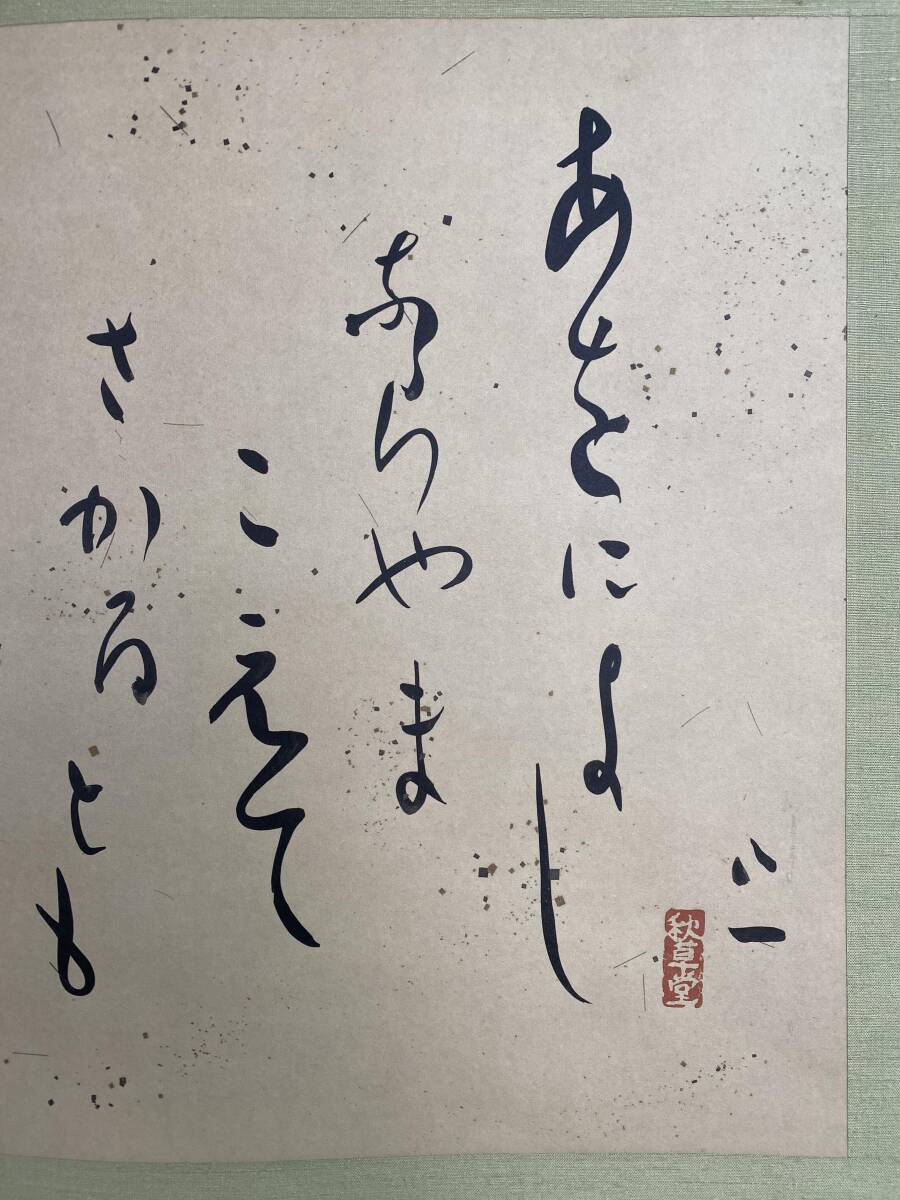 八一
秋草堂
あをによし
ならやま
こえて
さかるとも